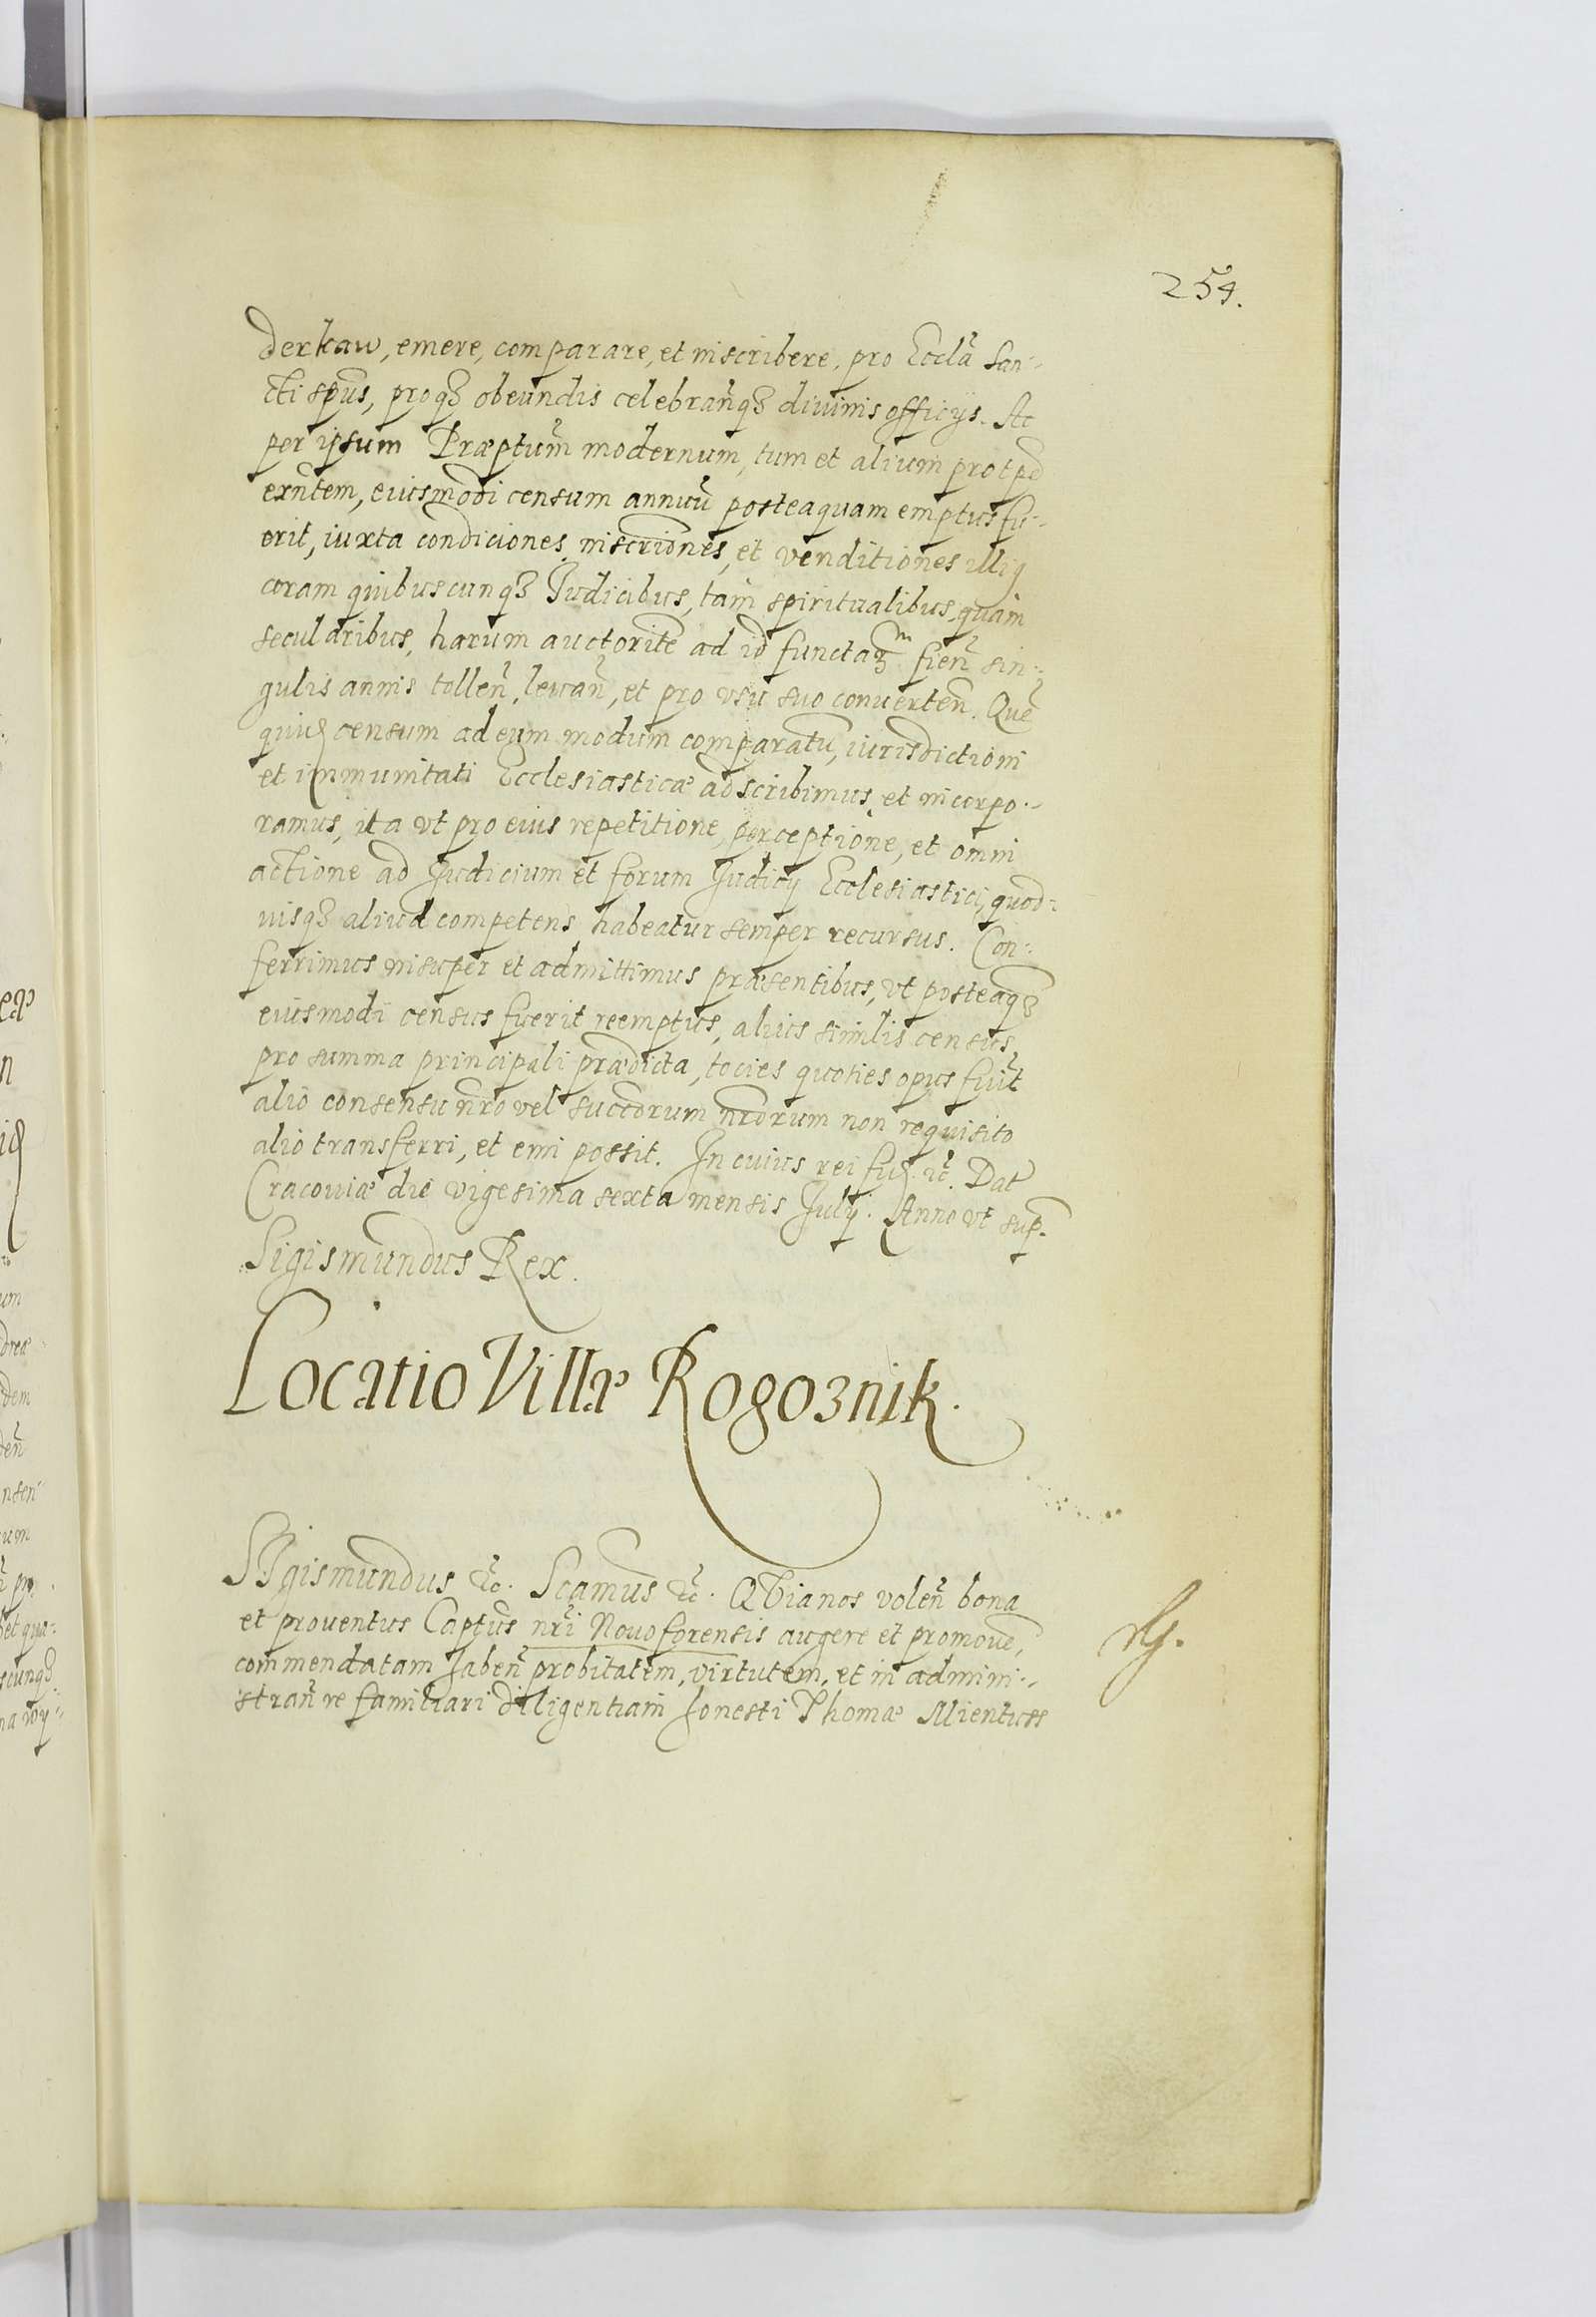 254.
derkaw, emere, comparare, et inscribere, pro Eccła San-
cti spūs, proqꝫ obeundis celebrañqꝫ diuinis officijs. Ac
per ipsum Præptum modernum, tum et alium pro tpe
exñtem, euismodi censum annuū posteaquam emptus fu-
erit, iuxta condiciones, inscriones, et venditiones illius
coram quibuscunqꝫ Judicibus, tam spiritualibus, quam
secularibus, harum auctorite ad id fieñ sin-
gulis annis tolleñ, leuañ, et pro vsu suo conuerteñ. Quē
quid censum ad eum modum comparatū, iurisdictioni
et immunitati Ecclesiasticæ adscribimus, et incorpo-
ramus, ita vt pro eius repetitione, perceptione, et omni
actione ad Judicium et forum Judicij Ecclesiastici, quod-
uisqꝫ aliud competens habeatur semper recursus. Con-
ferrimus insuper et admittimus præsentibus, vt posteaqꝫ
eiusmodi census fuerit reemptus, alius similis census
pro summa principali prædicta, tocies quoties opus fuit
alio consensu nro vel succorum nrorum non requisito
alio transferri, et emi possit. In cuius rei fid. ꝛc. Dat
Cracouiæ die vigesima sexta mensis Julij. Anno vt sup.
Sigismundus Rex.
Locatio Villæ Rogoznik.
SIgismundus ꝛc. Scamus ꝛc. QVia nos voleñ bona
et prouentus Captus nri Nouoforensis augere et promoue,
commendatam habeñ probitatem, virtutem, et in admini-
strañ re familiari diligentiam honesti Thomæ Mientus